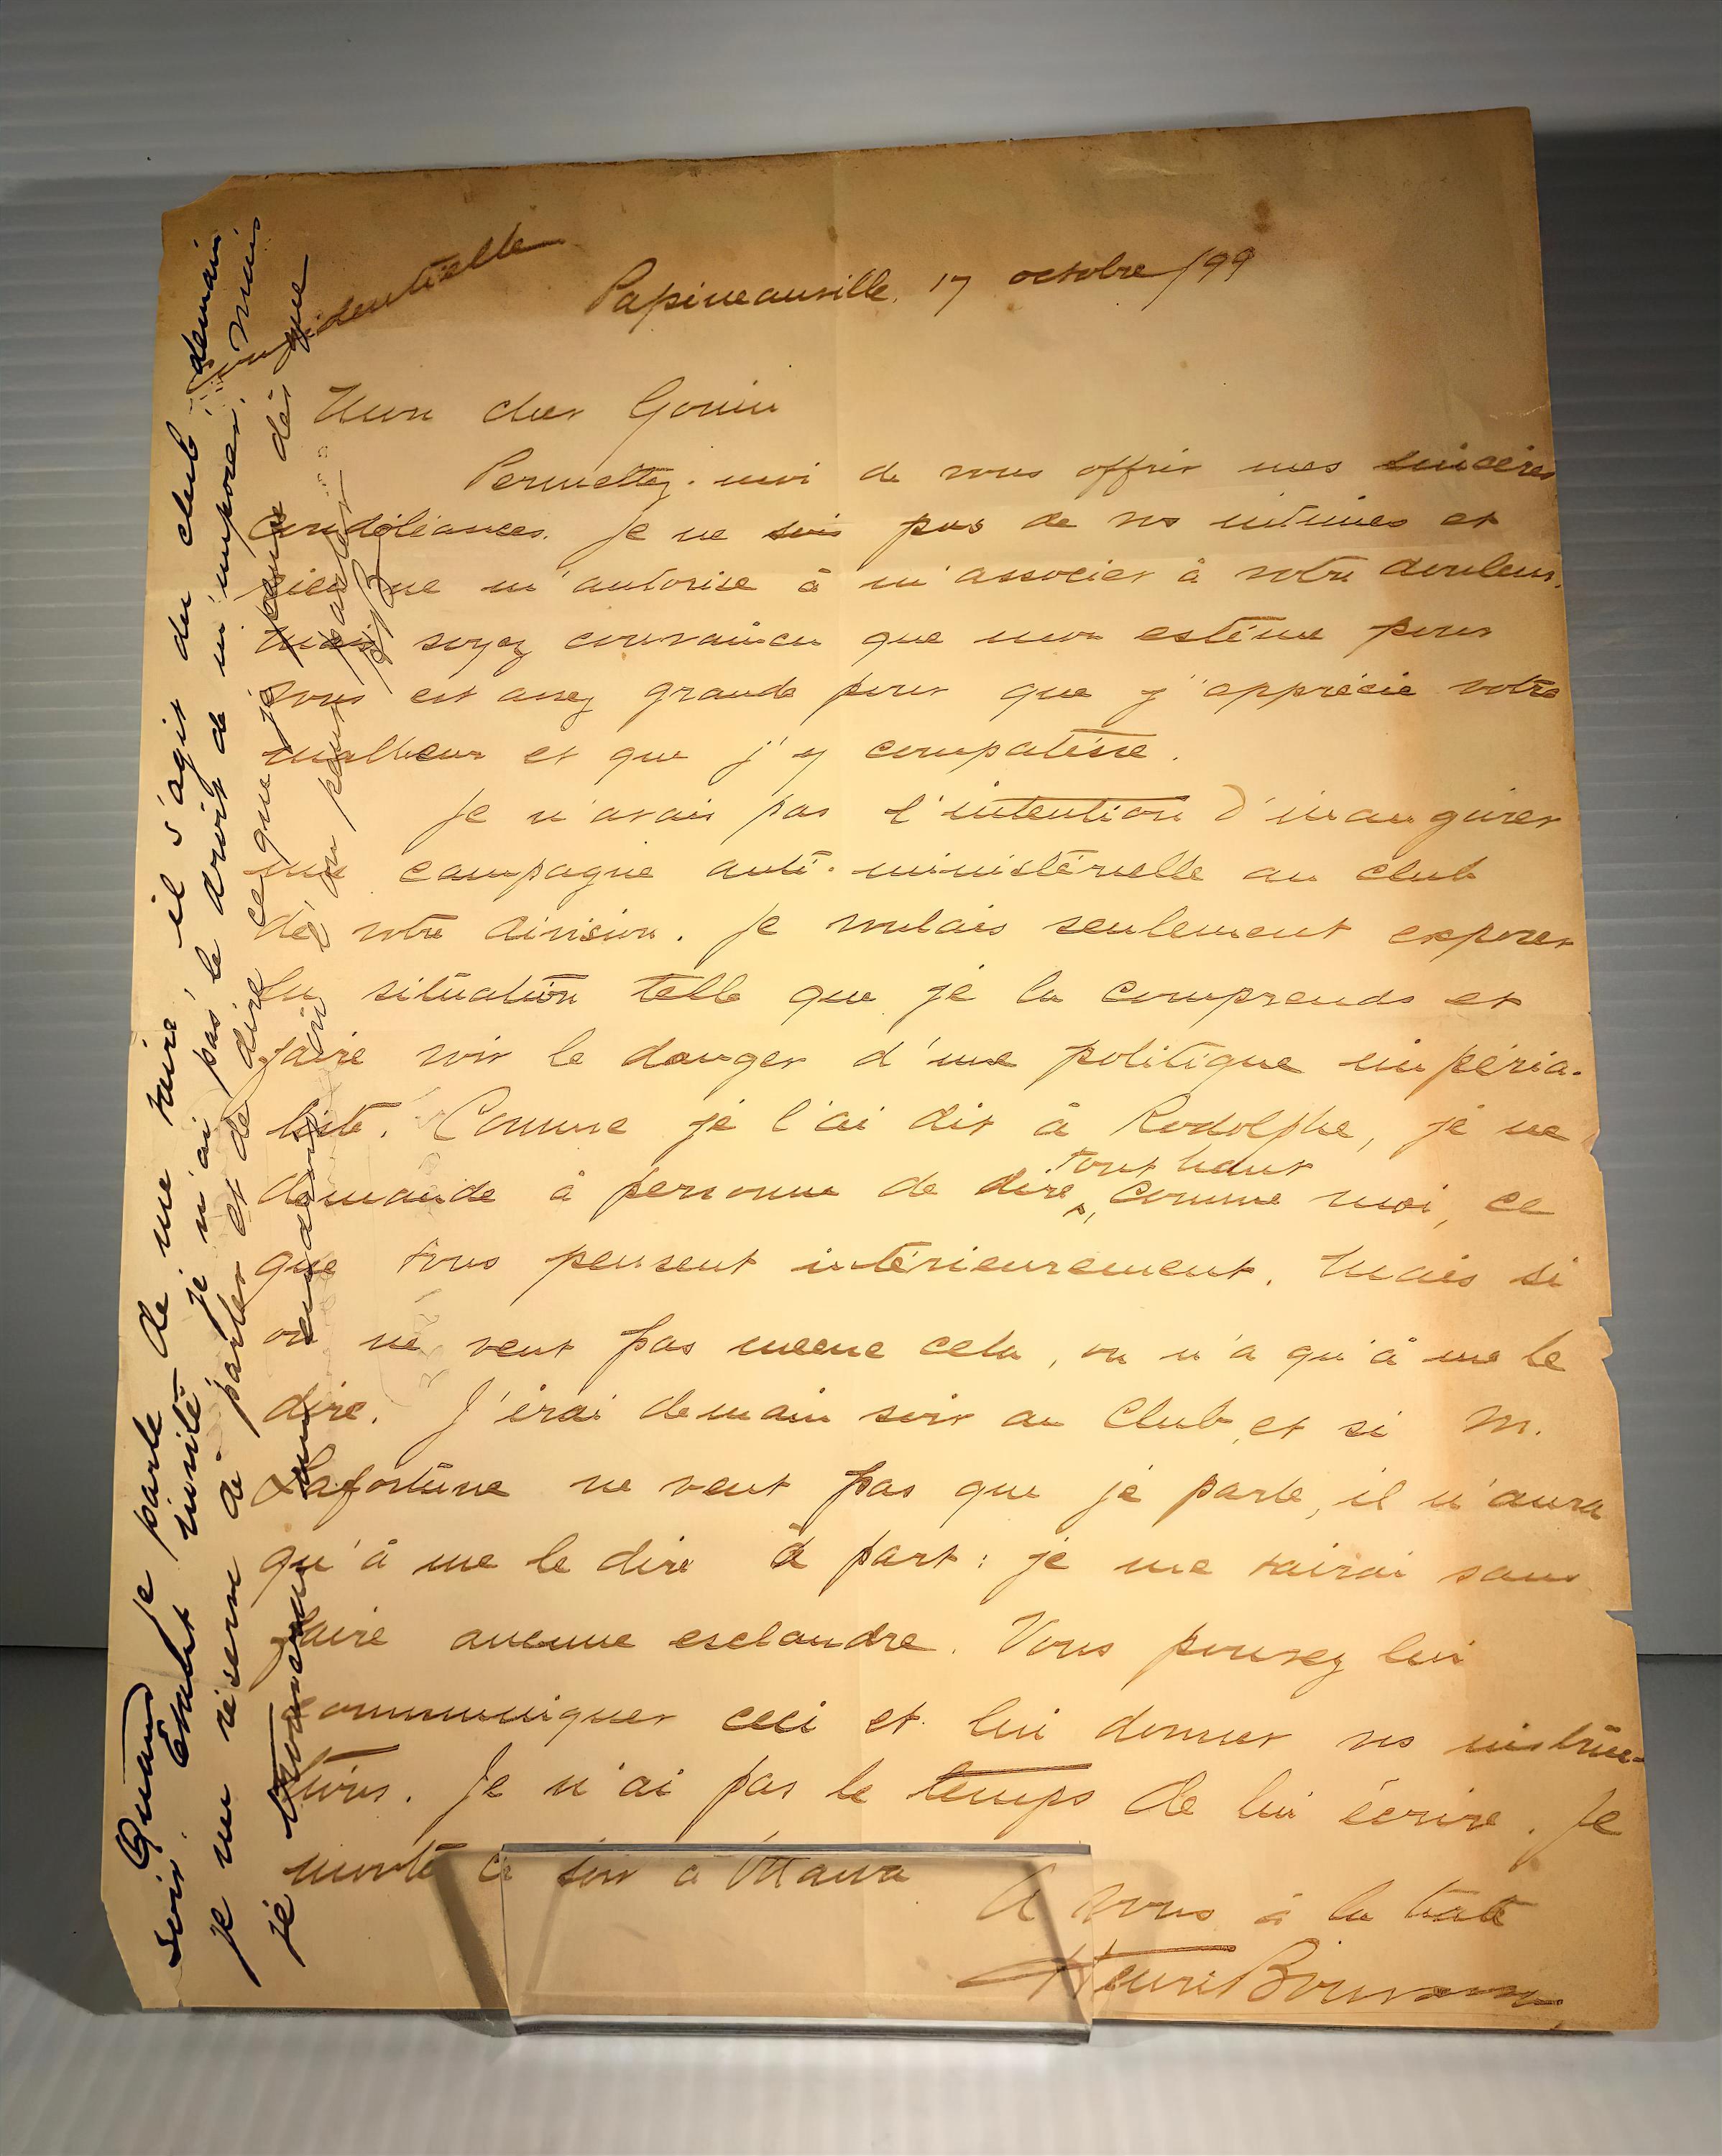 Confidentielle
Papineauville, 17 octobre/99
Mon cher Gouin
Permettez-moi de vous offrir mes sincères
condoléances. Je ne suis pas de vos intimes et
rien ne m'autorise à m'associer à votre douleur,
mais soyez convaincu que mon estime pour
vous est assez grande pour que j'apprécie votre
malheur et que j'y compatisse.
Je n'avais pas l'intention d'inaugurer
une campagne anti-ministérielle au club
de votre division. Je voulais seulement exposer
la situation telle que je la comprends et
faire voir le danger d'une politique impéria-
liste. Comme je l'ai dit à Rodolphe, je ne
demande à personne de dire tout haut, comme moi, ce
que tous pensent intérieurement. Mais si
on ne veut pas meme cela, on n'a qu'à me le
dire. J'irai demain soir au Club, et si M.
Lafortune ne veut pas que je parle, il n'aura
qu'à me le dire à part: je me tairai sans
faire aucune esclandre. Vous pouvez lui
communiquer ceci et lui donner vos instruc-
tions. Je n'ai pas le temps de lui écrire. Je
monte ce soir à Ottawa
A vous à la hate
Henri Bourassa
Quand je parle de me taire, il s'agit du club demain
soir. Etant invité, je n'ai pas le droit de m'imposer. Mais
je me réserve de parler et de dire ce que je pense dès que
je trouverai un endroit où l'on peut parler